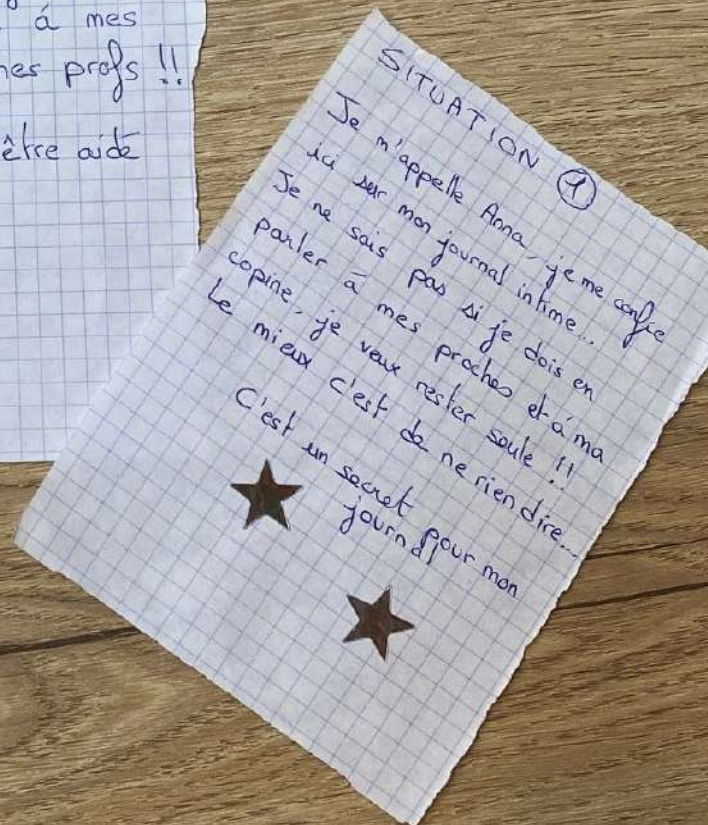 à mes
mes profs !!
être aidé
SITUATION 1
Je m'appelle Anna, je me confie
ici sur mon journal intime...
Je ne sais pas si je dois en
parler à mes proches et à ma
copine, je veux rester seule !!
Le mieux c'est de ne rien dire...
C'est un secret pour mon
journal